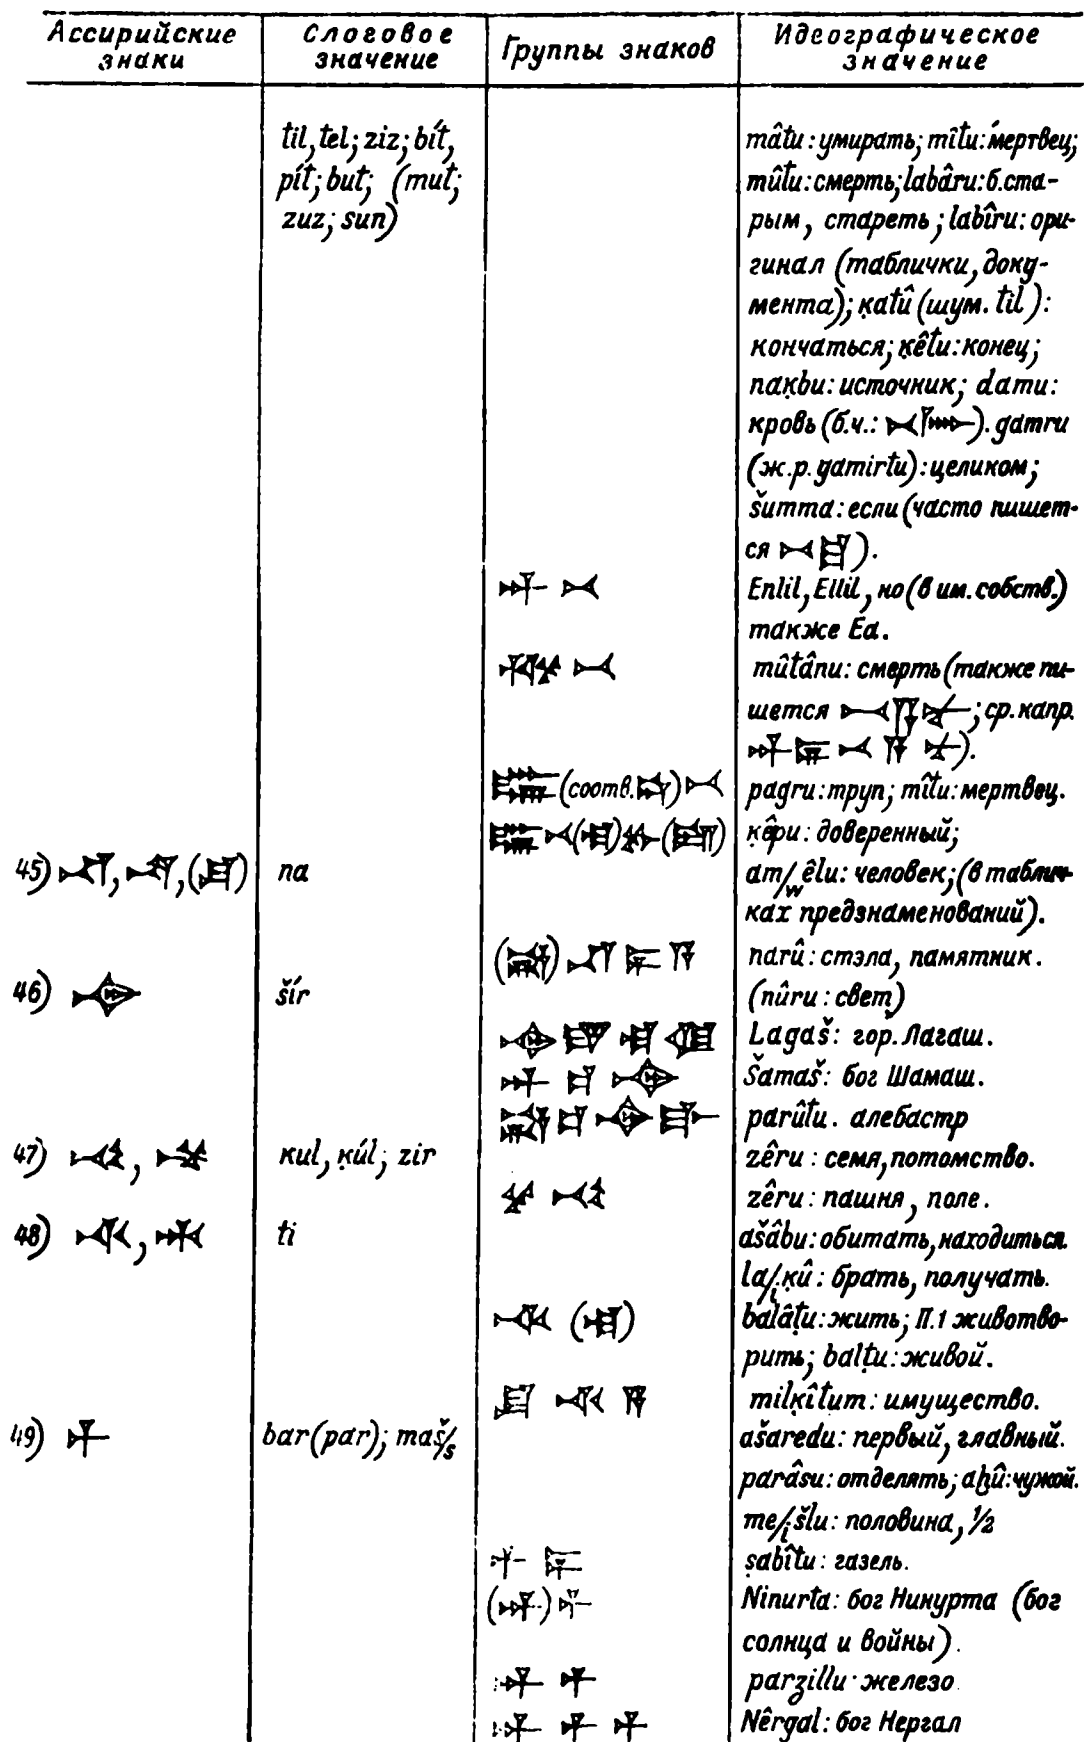 Ассирийские знаки | Слоговое значение | Группы знаков | Идеографическое значение
til, tel; ziz; bít, | mâtu: умирать; mîtu: мертвец;
pít; but; (mut; | mûtu: смерть; labâru: б. ста-
zuz; sun) | рым, стареть; labîru: ори-
гинал (таблички, доку-
мента); ḳatû (шум. til):
кончаться; ḳêtu: конец;
naḳbu: источник; damu:
кровь (б.ч.: 𒁁). gamru
(ж.р. gamirtu): целиком;
šumma: если (часто пишет-
ся 𒁁𒈠).
𒀭 𒁁 | Enlil, Ellil, но (в им. собств.)
также Ea.
𒁁 | mûtânu: смерть (также пи-
шется ; ср. напр.
).
(соотв. ) 𒁁 | pagru: труп; mîtu: мертвец.
ḳêpu: доверенный;
45) 𒈾, 𒈾, ( ) | na | am/wêlu: человек; (в таблич-
ках предзнаменований).
( ) 𒈾 𒆕 𒀀 | narû: стэла, памятник.
46) 𒋓 | šír | (nûru: свет)
𒋓 𒁓 𒆷 𒆠 | Lagaš: гор. Лагаш.
𒀭 𒋓 | Šamaš: бог Шамаш.
𒋓 | parûtu. алебастр
47) 𒆰, 𒆰 | kul, ḳúl; zir | zêru: семя, потомство.
𒆰 | zêru: пашня, поле.
48) 𒋾, 𒋾 | ti | ašâbu: обитать, находиться.
la/iḳû: брать, получать.
𒋾 (𒆷) | balâṭu: жить; II.1 животво-
рить; balṭu: живой.
𒋾 𒀀 | milḳîtum: имущество.
49) 𒁇 | bar (par); maš/s | ašaredu: первый, главный.
parâsu: отделять; aḫû: чужой.
me/išlu: половина, ½
𒁇 𒆕 | ṣabîtu: газель.
(𒀭) 𒁇 | Ninurta: бог Нинурта (бог
солнца и войны).
𒀭 𒁇 | parzillu железо
𒀭 𒁇 𒁇 | Nêrgal: бог Нергал